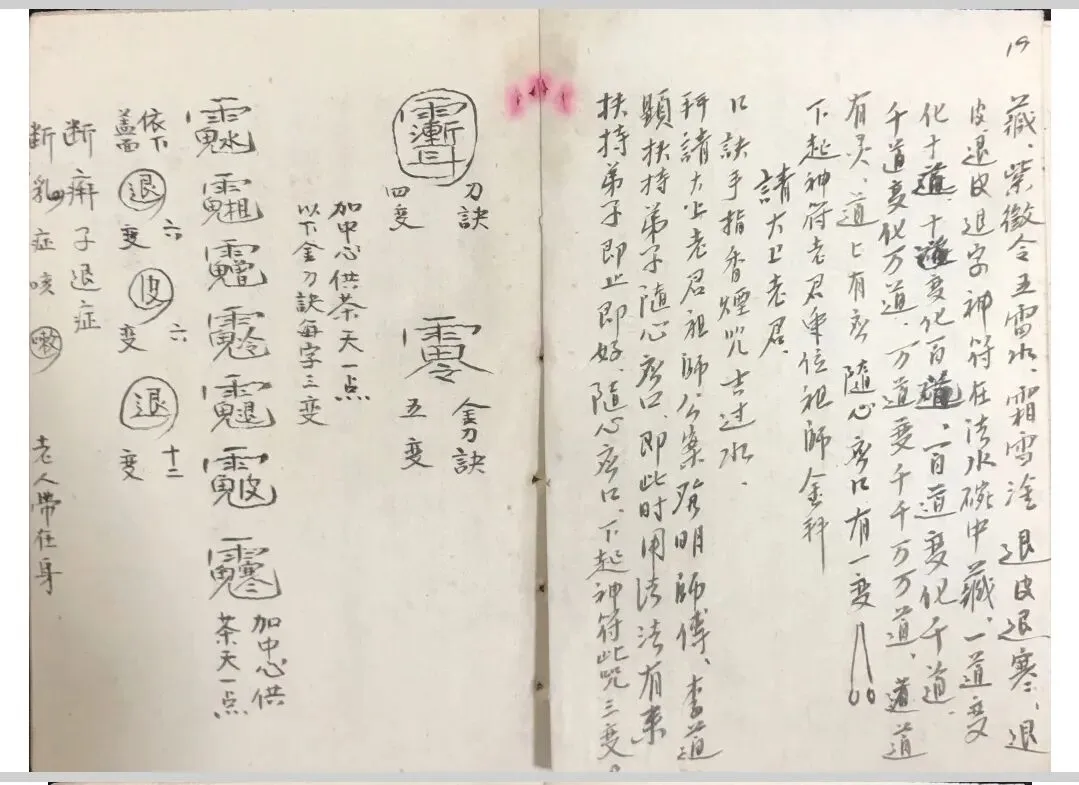 19
藏、紫微令五雷水、霜雪淦退皮退寒、退
皮退皮退字神符在法水碗中藏、一道变
化十道、十道变化百道、一百道变化千道、
千道变化万道、万道变千千万万道、道道
有灵、道七有灵 随心灵口有一变
下起神符老君車位祖師金科
請太上老君、
口訣手指香煙咒吉过水、
拜請太上老君祖師公案 明師傅、李道
顯扶持弟子隨心灵口、即此时用法法有来
扶持弟子即止即好、隨心灵口、下起神符此咒三变。
刀訣
四变
金刀訣
五变
加中心供茶天一点
以下金刀訣每字三变
加中心供
茶天一点
依下
盖面
退
六
变
皮
六
变
退
十二
变
断痳子退症
断乳症咳嗽
老人帶在身